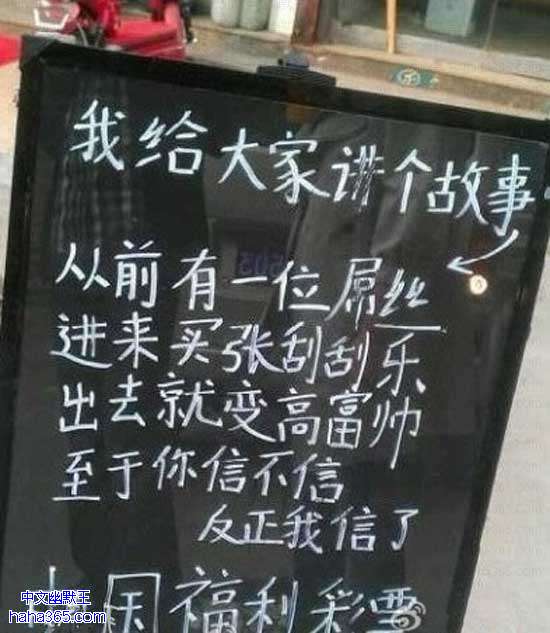 我给大家讲个故事
从前有一位屌丝
进来买张刮刮乐
出去就变高富帅
至于你信不信
反正我信了
中国福利彩票
中文幽默王
haha365.com